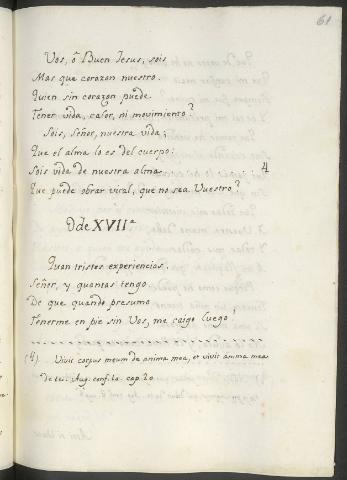 61
Vos, ô Buen Jesus, sois
Mas que corazon nuestro.
Quien sin corazon puede
Tener vida, calor, ni movimiento?
Sois, Señor, nuestra vida;
Que el alma lo es del cuerpo:
Sois vida de nuestra alma 4
Que puede obrar viral, que no sea Vuestro?
Ode XVIIª
Quan tristes experiencias,
Señor, y quantas tengo
De que quando presumo
Tenerme en pie sin Vos, me caigo luego!
(4) Vivit corpus meum de anima mea, et vivit anima mea
de te. Aug. conf. l. 10 cap. 20